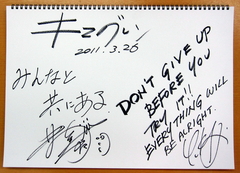 2011.3.26
みんなと
共にある
DON'T GIVE UP
BEFORE YOU
TRY IT!!
EVERYTHING WILL
BE ALRIGHT.